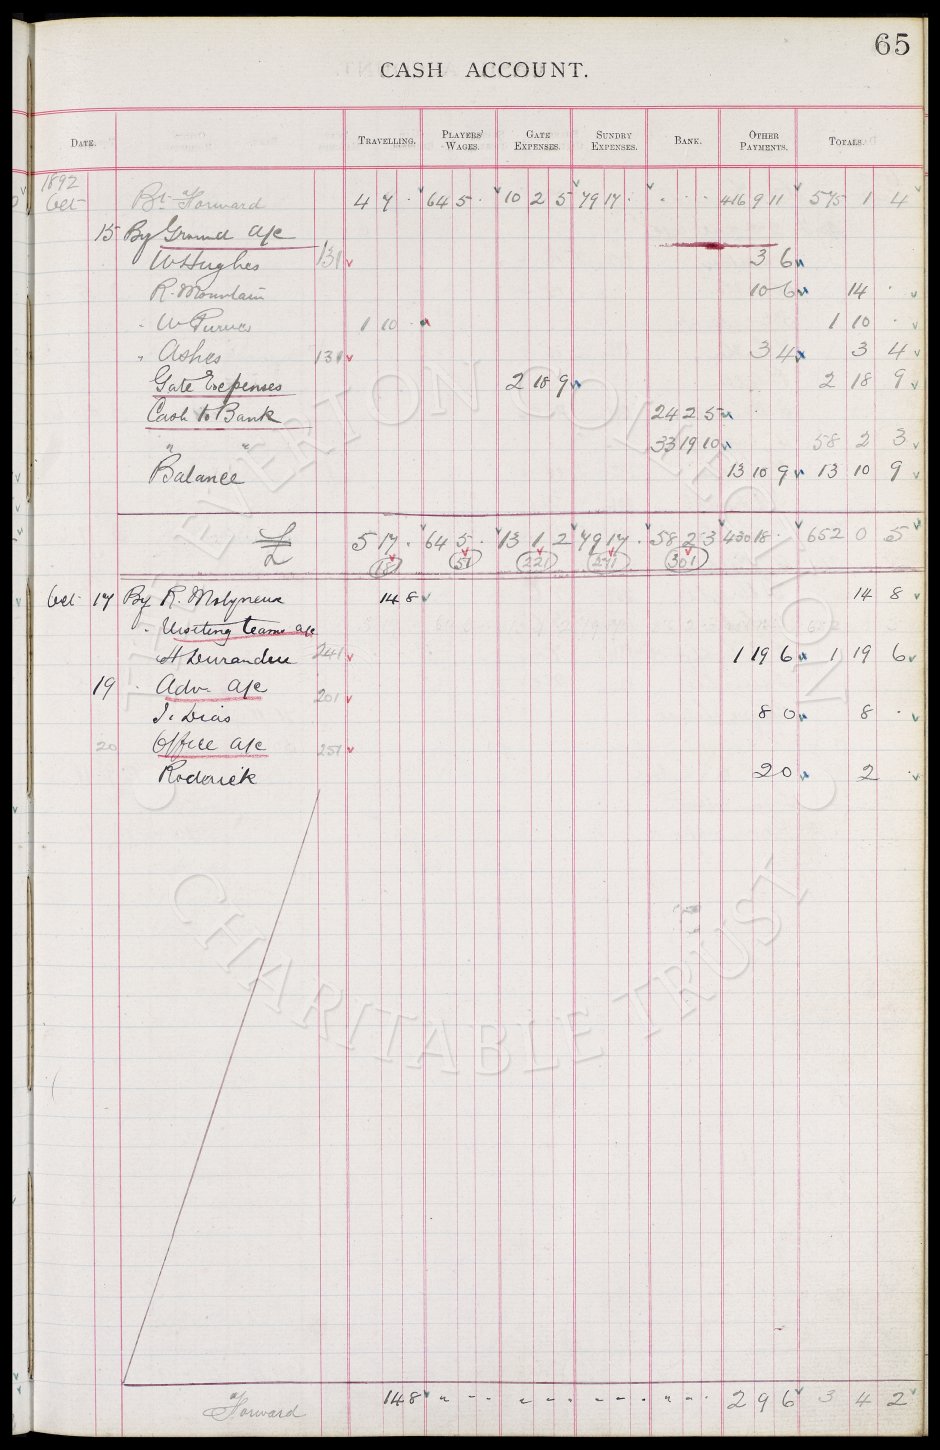 65
CASH ACCOUNT.
DATE. TRAVELLING. PLAYERS' WAGES. GATE EXPENSES. SUNDRY EXPENSES. BANK. OTHER PAYMENTS. TOTALS.
1892
Oct Bt Forward 4 7 . 64 5 . 10 2 5 79 17 . . . . 416 9 11 575 1 4
15 By Ground a/c
W Hughes 131 3 6
R. Mountain 10 6 14 .
" W Turner 1 10 . 1 10 .
" Ashes 131 3 4 3 4
Gate Expenses 2 18 9 2 18 9
Cash to Bank 24 2 5
" " 33 19 10 58 2 3
Balance 13 10 9 13 10 9
£ 5 17 . 64 5 . 13 1 2 79 17 . 58 2 3 430 18 . 652 0 5
181 51 221 271 301
Oct 17 By R. Molyneux 14 8 14 8
" Visiting teams a/c
H Durandu 241 1 19 6 1 19 6
19 " Adv. a/c 201
J. Dias 8 0 8 .
20 Office a/c 251
Roderick 2 0 2 .
Forward 14 8 " - - - - - - - - " - . 2 9 6 3 4 2
THE EVERTON COLLECTION
CHARITABLE TRUST